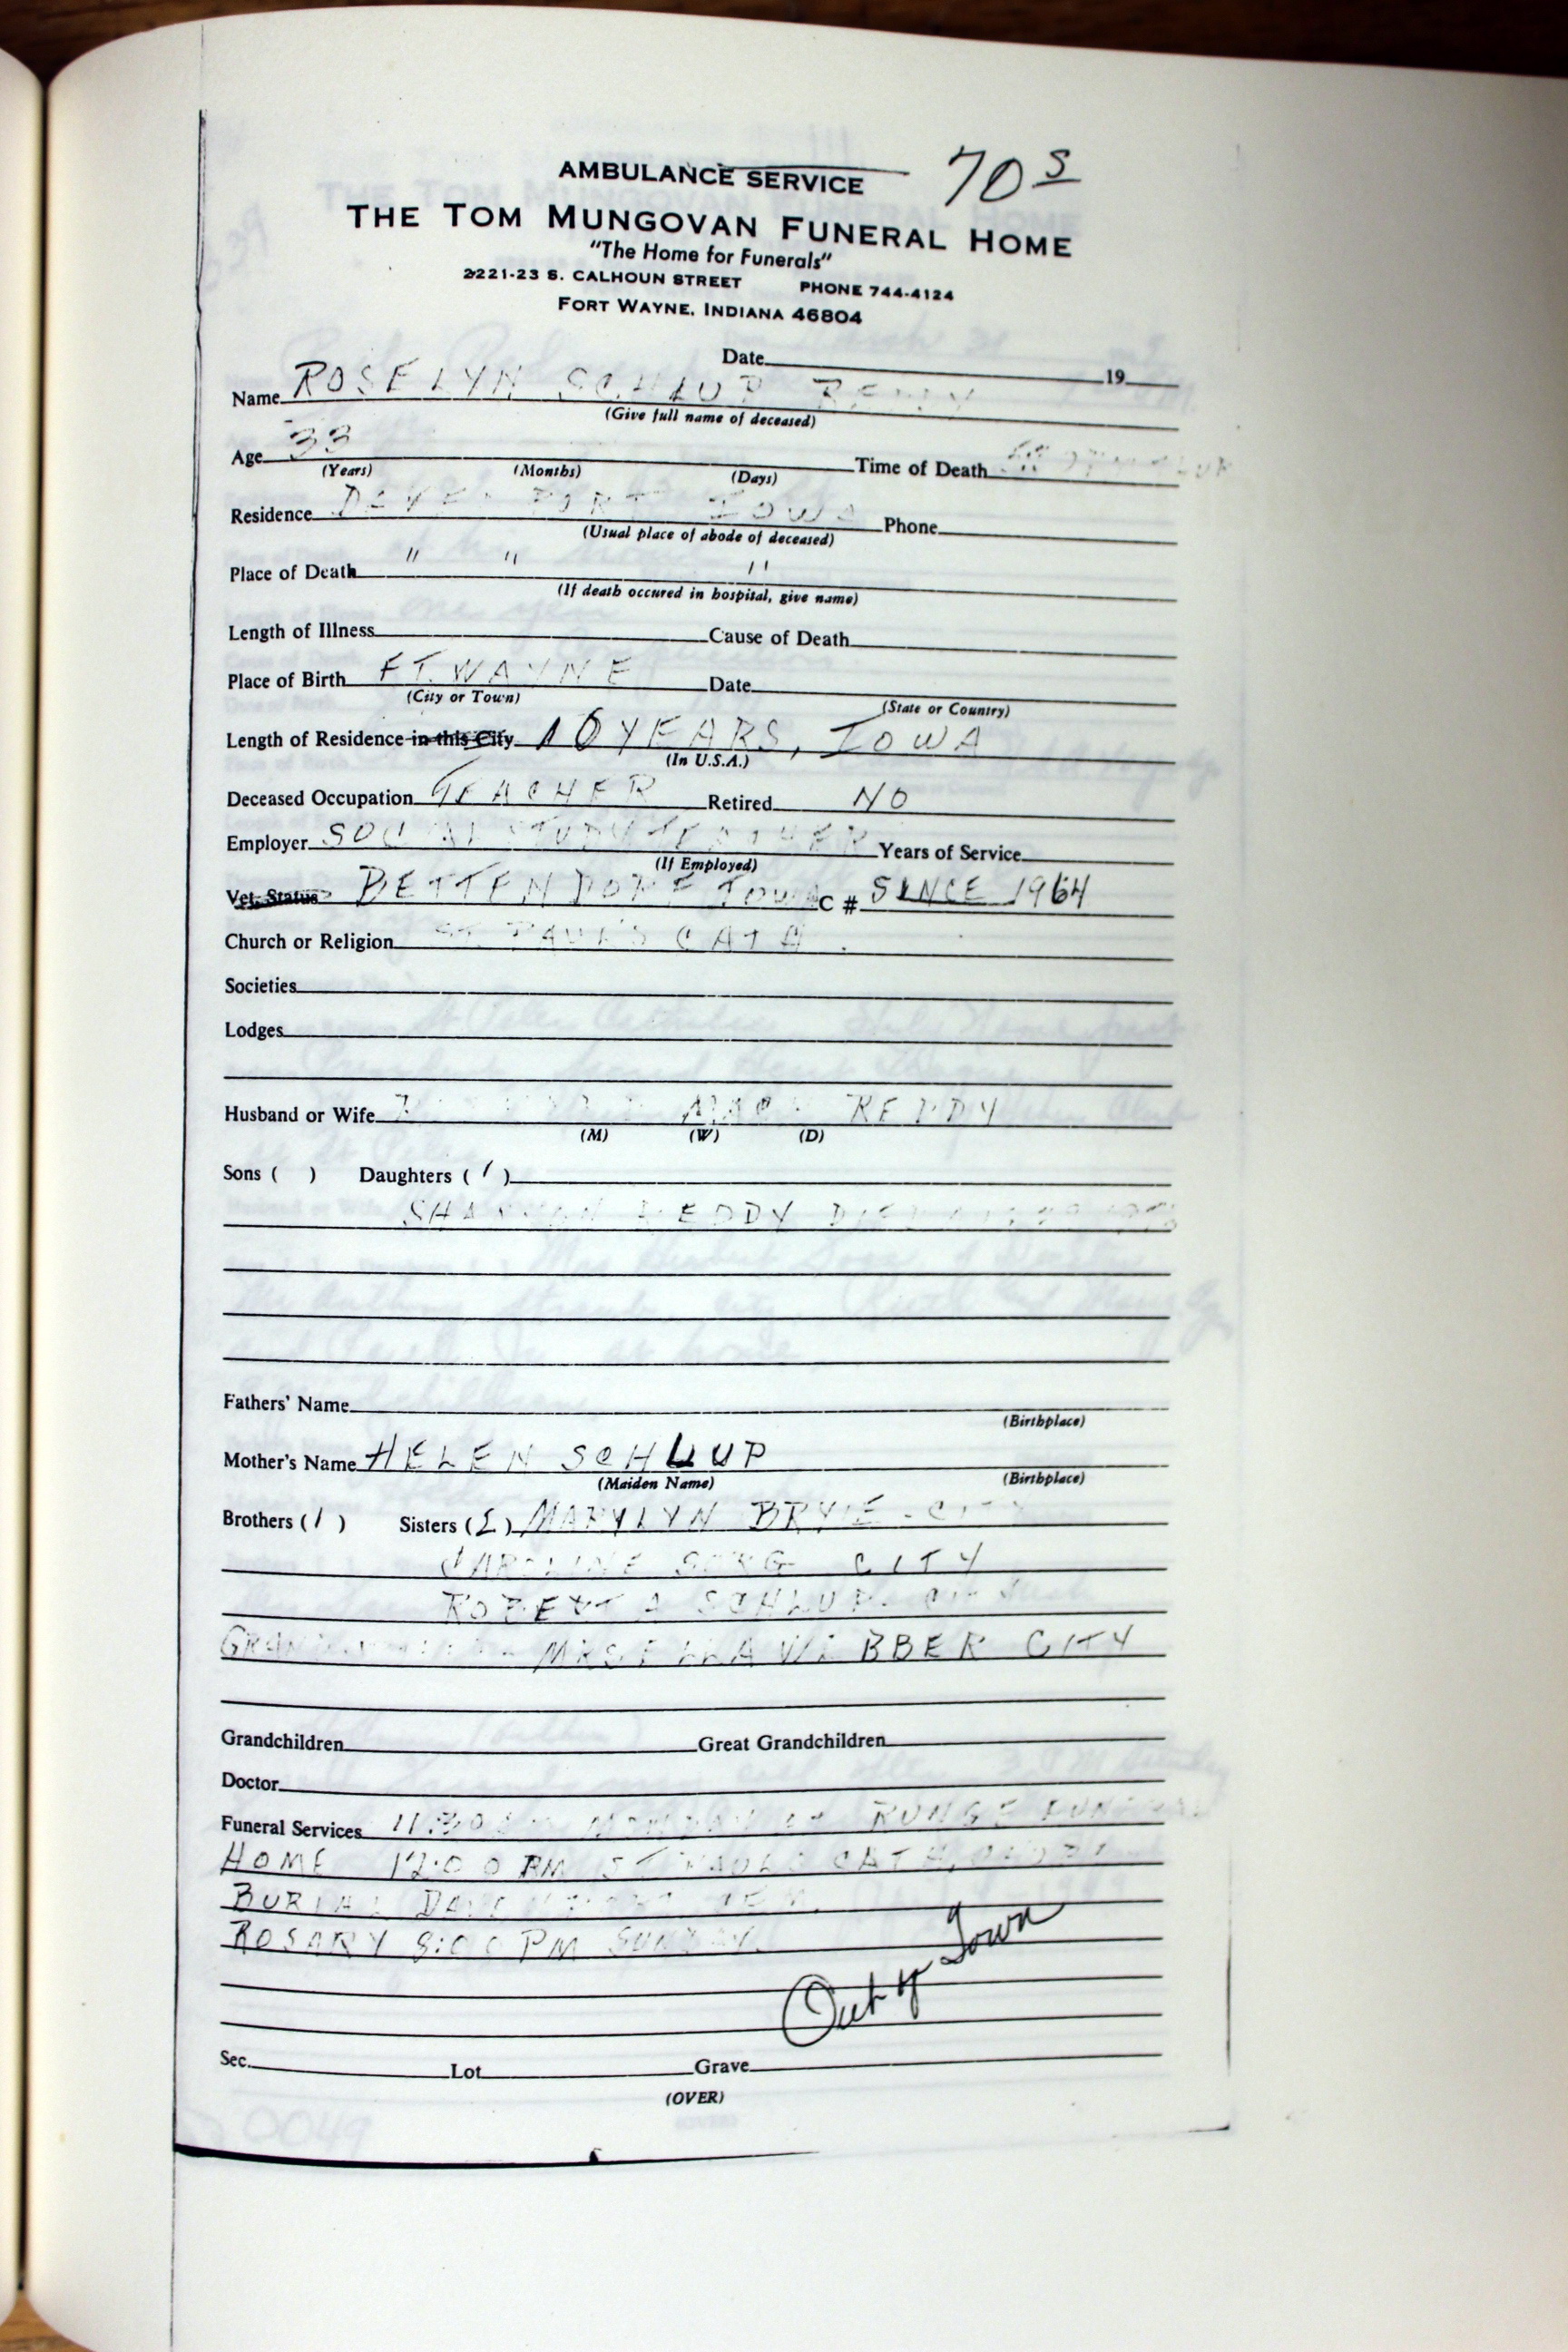 AMBULANCE SERVICE 70s
THE TOM MUNGOVAN FUNERAL HOME
"The Home for Funerals"
2221-23 S. CALHOUN STREET PHONE 744-4124
FORT WAYNE, INDIANA 46804
Date 19
Name ROSELYN SCHLUP REDDY
(Give full name of deceased)
Age 33 Time of Death
(Years) (Months) (Days)
Residence DAVENPORT IOWA Phone
(Usual place of abode of deceased)
Place of Death " " "
(If death occured in hospital, give name)
Length of Illness Cause of Death
Place of Birth FT. WAYNE Date
(City or Town) (State or Country)
Length of Residence in this City 10 YEARS, IOWA
(In U.S.A.)
Deceased Occupation TEACHER Retired NO
Employer SOCIAL STUDY TEACHER Years of Service
(If Employed)
Vet. Status BETTENDORF IOWA C # SINCE 1964
Church or Religion ST. PAUL'S CATH.
Societies
Lodges
Husband or Wife REDDY
(M) (W) (D)
Sons ( ) Daughters ( 1 )
SHANNON REDDY DIED
Fathers' Name
(Birthplace)
Mother's Name HELEN SCHLUP
(Maiden Name) (Birthplace)
Brothers ( 1 ) Sisters ( 2 ) MARYLYN - CITY
CAROLINE SORG CITY
ROBERT A SCHLUP.
MRS ELLA WIBBER CITY
Grandchildren Great Grandchildren
Doctor
Funeral Services 11:30 MONDAY AT RUNGE FUNERAL
HOME 12:00 PM ST PAULS CATH,
BURIAL DAVENPORT MEM.
ROSARY 8:00 PM SUNDAY.
Out of Town
Sec. Lot Grave
(OVER)